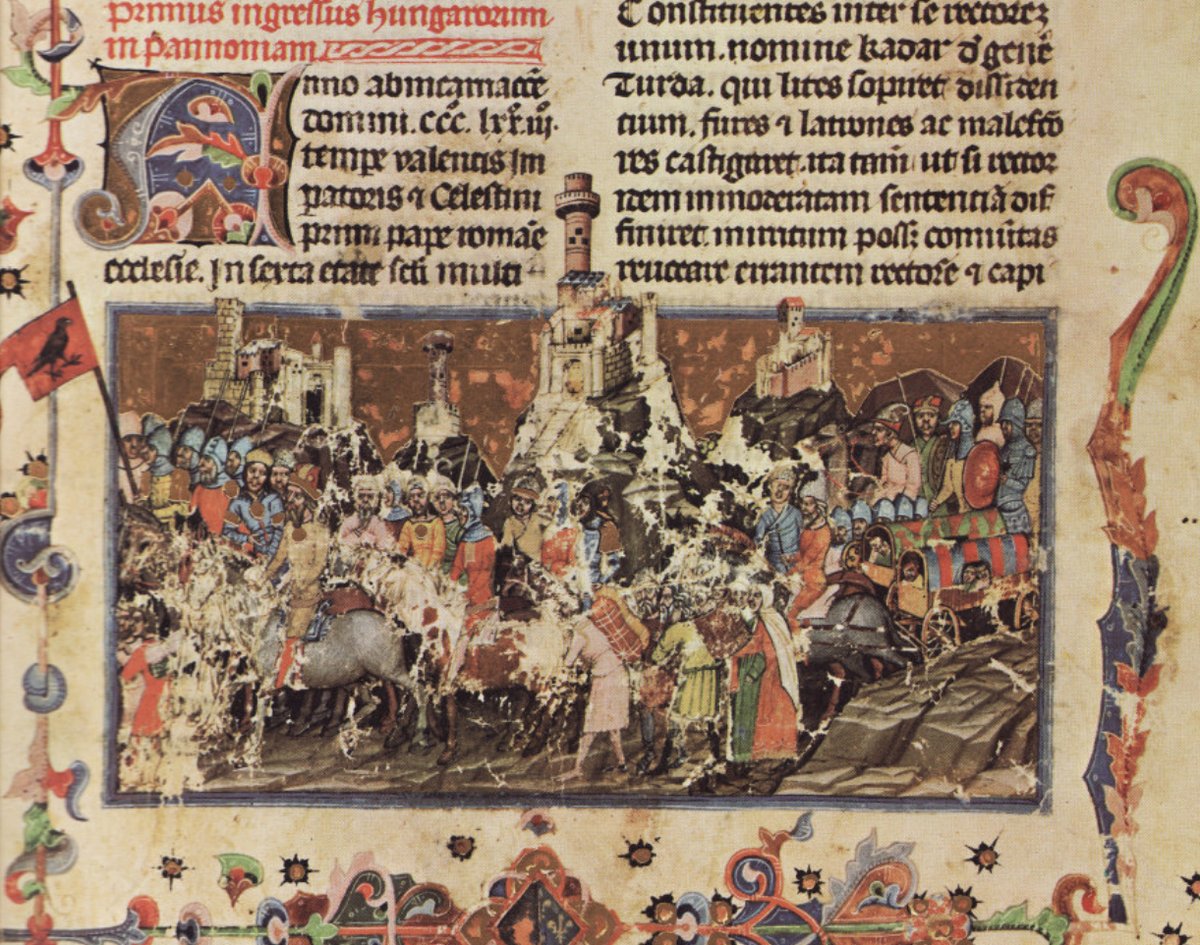 primus ingressus hungarorum
in pannoniam
Anno ab incarnaccōe
domini. cccͦ. lxxͦ. iiiͦ.
tempe valentis Im
patoris ⁊ Celestini
primi pape romāe
ecclesie. In sexta etate scli multi
Constituentes inter se rectorez
unum. nomine kadar dˀ genē
Turda. qui lites sopiret dissiden
tium. fures ⁊ latrones ac malefco
res castigaret. ita tam̄ ut si rector
idem inmoderatam sentenciā dif
finiret. inirritum poss; comūitas
reuocare errantem rectorē ⁊ capi